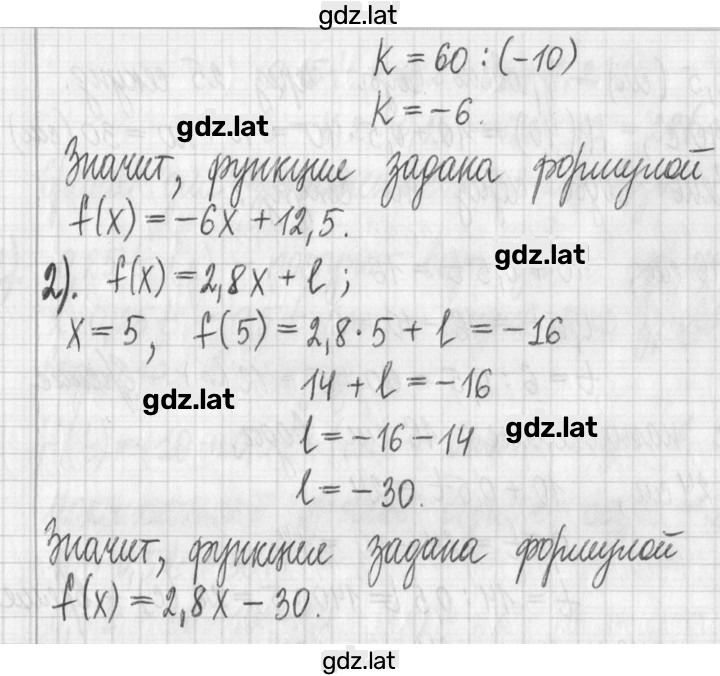 gdz.lat
K = 60 : (-10)
K = -6.
gdz.lat
Значит, функция задана формулой
f(x) = -6x + 12,5.
gdz.lat
2). f(x) = 2,8x + l ;
x = 5, f(5) = 2,8 · 5 + l = -16
14 + l = -16
gdz.lat
l = -16 - 14
gdz.lat
l = -30.
Значит, функция задана формулой
f(x) = 2,8x - 30.
gdz.lat